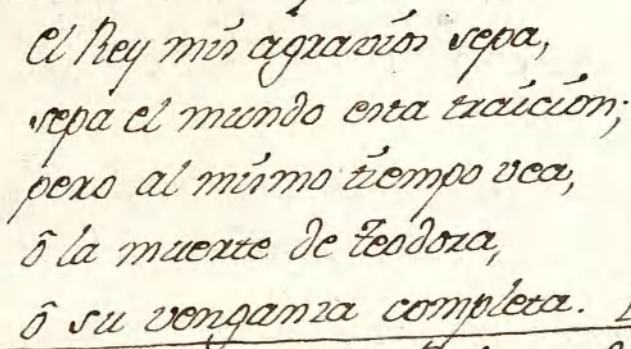 el Rey mis agravios sepa,
sepa el mundo esta traición;
pero al mismo tiempo vea,
ô la muerte de Teodora,
ô su venganza completa.